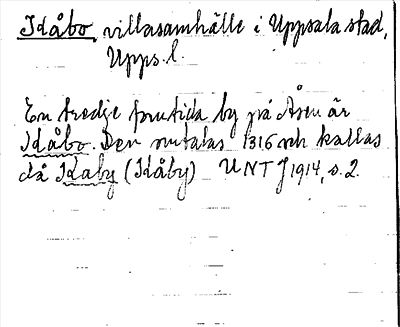 Idåbo, villasamhälle i Uppsala stad,
Upps. l.
En tredje forntida by på Åsen är
Idåbo. Den omtalas 1316 och kallas
då Idaby (Idåby) UNT J 1914, s. 2.